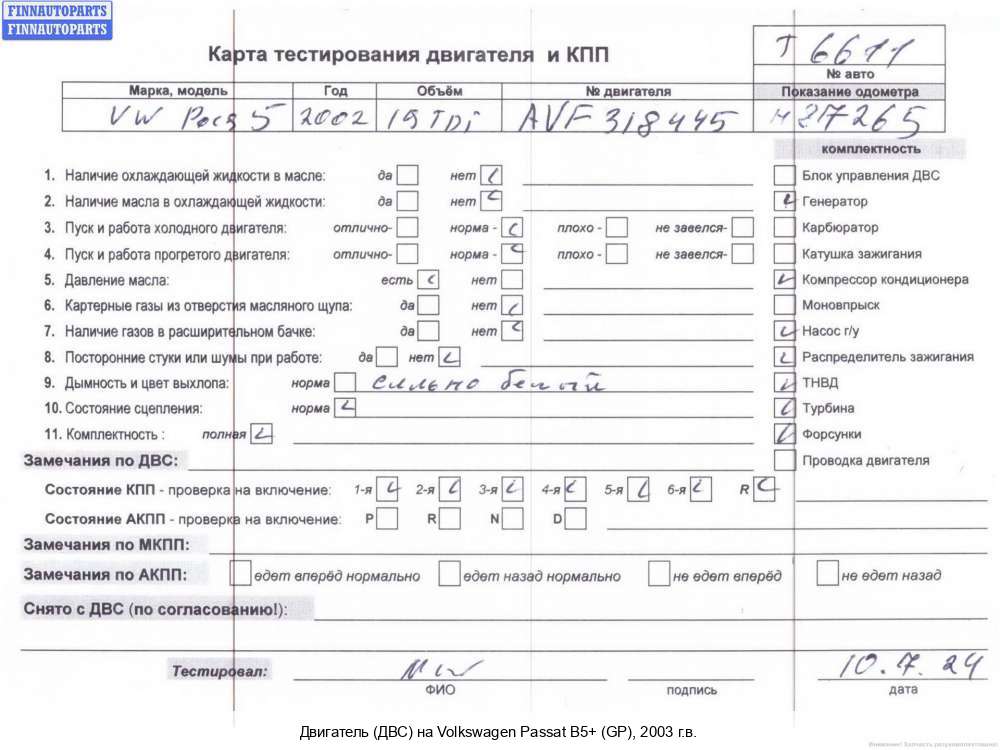 FINNAUTOPARTS
FINNAUTOPARTS
Карта тестирования двигателя и КПП
Т 6611
№ авто
Марка, модель Год Объём № двигателя Показание одометра
VW 5 2002 19 TDi AVF 318445 817265
комплектность
1. Наличие охлаждающей жидкости в масле: да нет
Блок управления ДВС
2. Наличие масла в охлаждающей жидкости: да нет
Генератор
3. Пуск и работа холодного двигателя: отлично- норма - плохо - не завелся-
Карбюратор
4. Пуск и работа прогретого двигателя: отлично- норма - плохо - не завелся-
Катушка зажигания
5. Давление масла: есть нет
Компрессор кондиционера
6. Картерные газы из отверстия масляного щупа: да нет
Моновпрыск
7. Наличие газов в расширительном бачке: да нет
Насос г/у
8. Посторонние стуки или шумы при работе: да нет
Распределитель зажигания
9. Дымность и цвет выхлопа: норма сильно белый
ТНВД
10. Состояние сцепления: норма
Турбина
11. Комплектность : полная
Форсунки
Замечания по ДВС:
Проводка двигателя
Состояние КПП - проверка на включение: 1-я 2-я 3-я 4-я 5-я 6-я R
Состояние АКПП - проверка на включение: P R N D
Замечания по МКПП:
Замечания по АКПП: едет вперёд нормально едет назад нормально не едет вперёд не едет назад
Снято с ДВС (по согласованию!):
Тестировал: 10.7.24
ФИО подпись дата
Двигатель (ДВС) на Volkswagen Passat B5+ (GP), 2003 г.в.